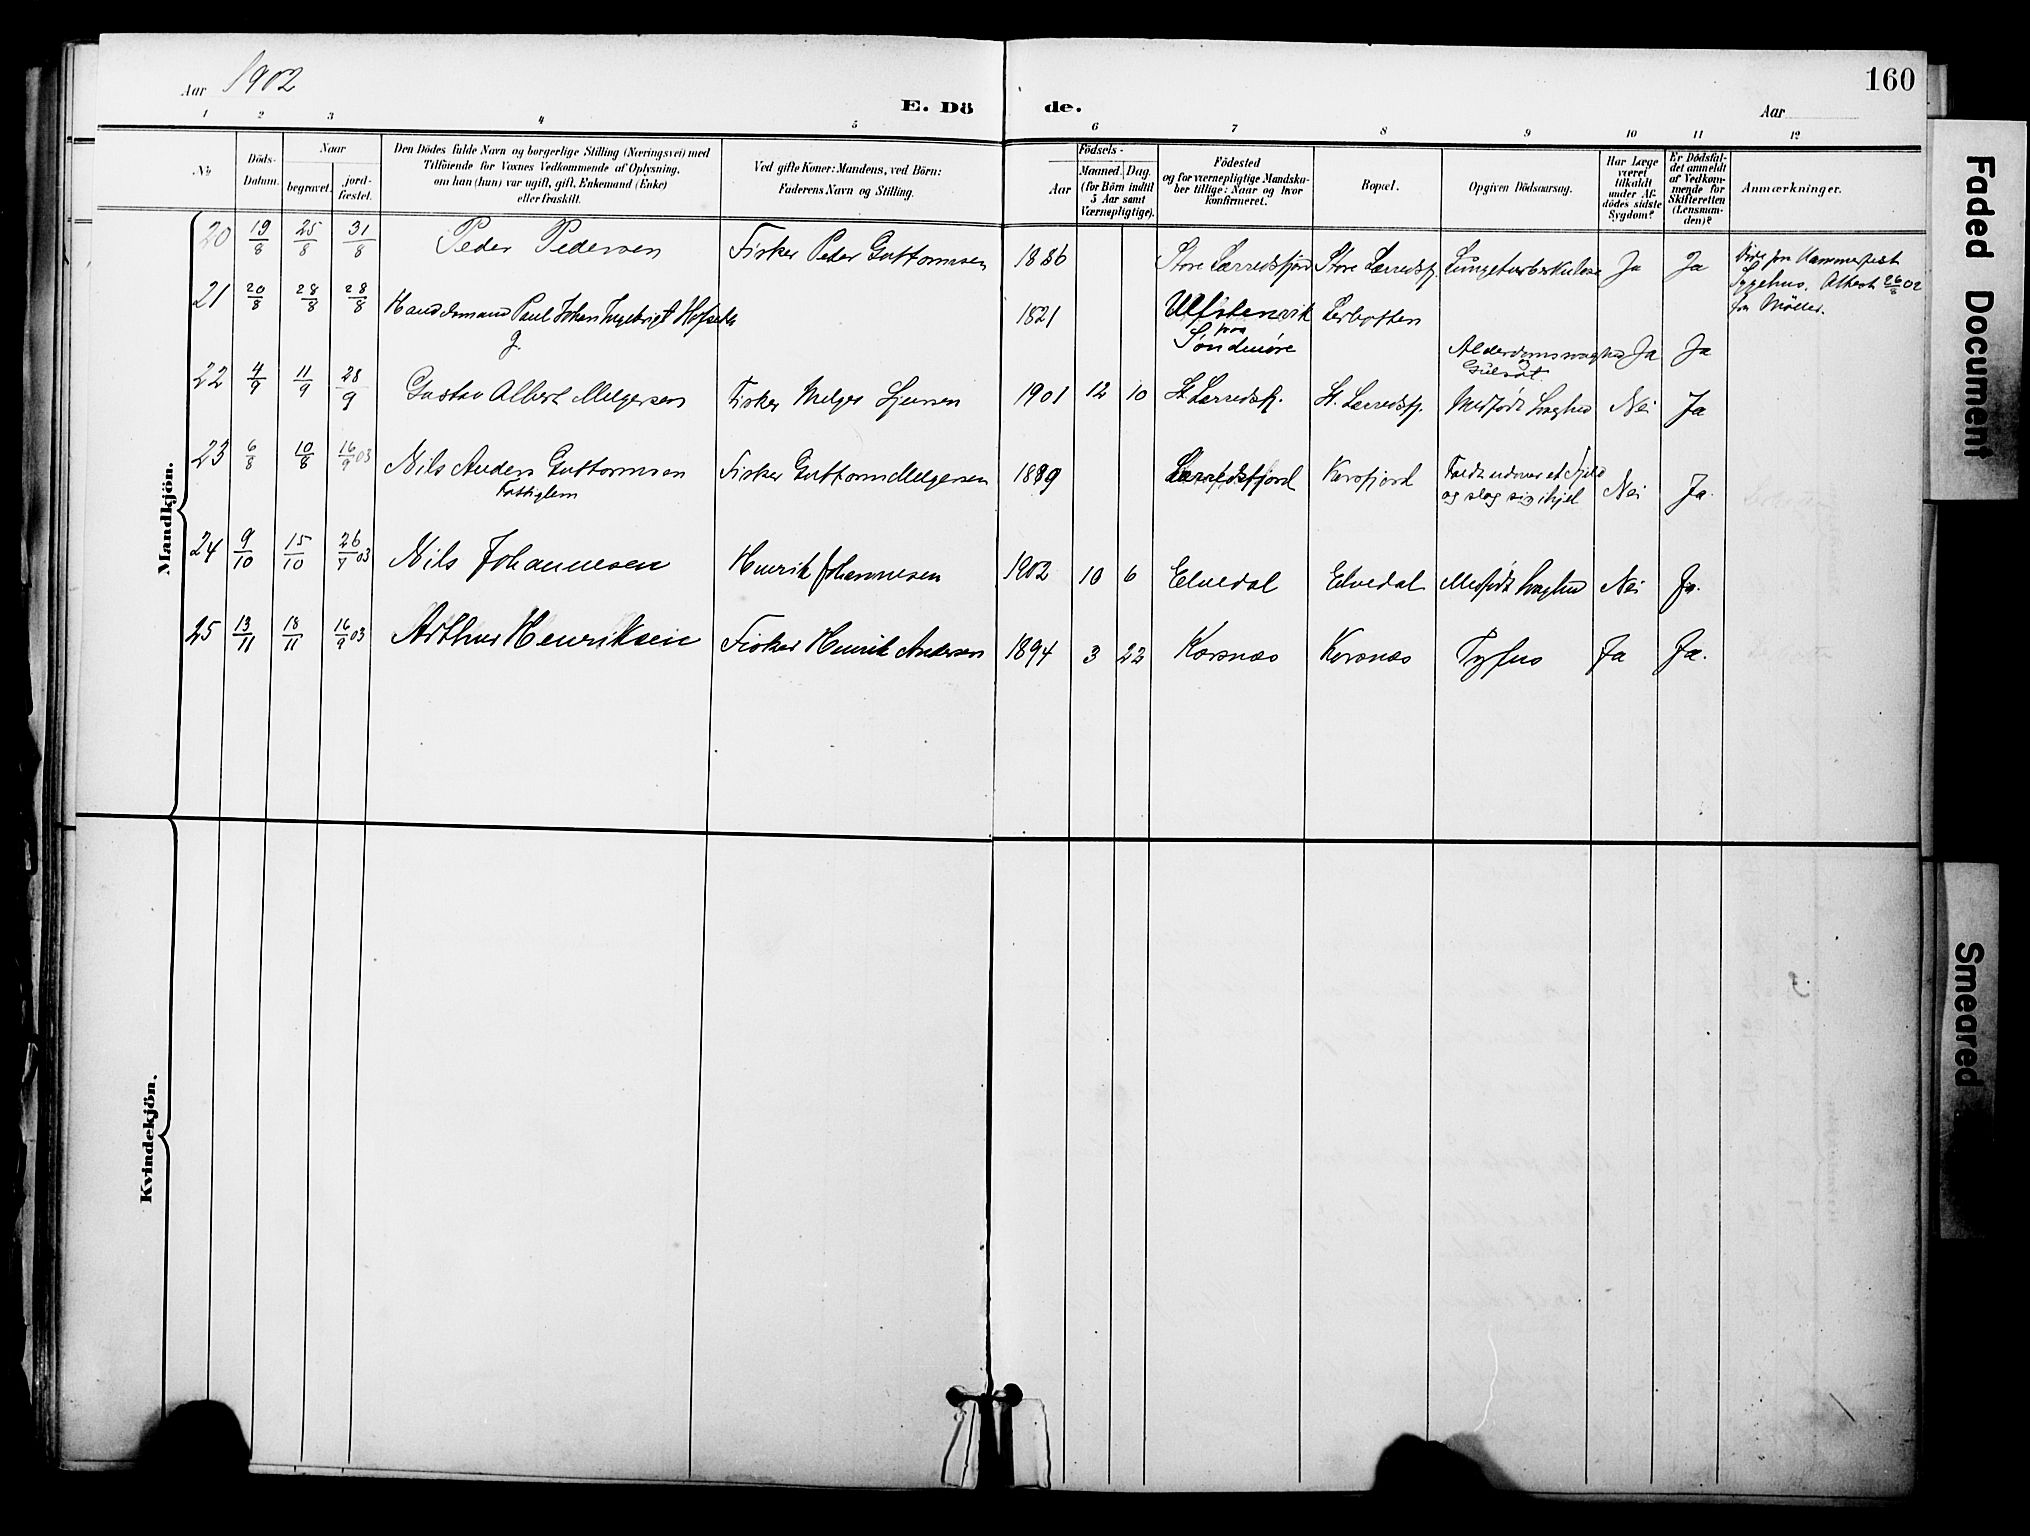 Aar 1902
E. Dö de.
Aar
160
1 2 3 4 5 6 7 8 9 10 11 12
No
Döds-Datum.
Naar
begravet.
jord-fæstet.
Den Dödes fulde Navn og borgerlige Stilling (Næringsvei) med
Tilföiende for Voxnes Vedkommende af Oplysning,
om han (hun) var ugift, gift, Enkemand (Enke)
eller fraskilt.
Ved gifte Koner: Mandens, ved Börn:
Faderens Navn og Stilling.
Födsels-
Aar
Maaned. Dag.
(for Börn indtil
5 Aar samt
Værnepligtige).
Födested
og for værnepligtige Mandsku-
ber tillige: Naar og hvor
konfirmeret.
Bopæl.
Opgiven Dödsaarsag.
Har Læge
været
tilkaldt
under Af-
dödes sidste
Sygdom?
Er Dödsfal-
det anmeldt
af Vedkom-
mende for
Skifteretten
(Lensman-
den)?
Anmærkninger.
Mandkjön.
20 19/8 25/8 31/8 Peder Pedersen Fisker Peder Guttormsen 1886 Store Lærredsfjord Store Lærredsfj. Lungetuberkulose Ja Ja
Hammerfest
Sygehus. Attest 26/8 02
fra Møller.
21 20/8 28/8 28/8 Handelsmand Paul Johan Ingebrigt Hofseth 1821 Ulfstenvik Lerbotten
g. paa
Søndmøre Alderdomssvaghed Ja Ja
Gulsot.
22 4/9 11/9 28/9 Gustav Albert Melgersen Fisker Melger 1901 12 10 St. Lærredsfj. St. Lærredsfj. Medfødt Svaghed Nei Ja
23 6/8 10/8 16/9 03 Nils Anders Guttormsen Fisker Guttorm Melgersen 1889 Lærredsfjord Korsfjord Faldt udover et Fjeld
Fattiglem og slog sig ihjel Nei Ja.
24 9/10 15/10 26/7 03 Nils Johannesen Henrik Johannesen 1902 10 6 Elvedal Elvedal Medfødt Svaghed Nei Ja.
25 13/11 18/11 16/9 03 Arthur Henriksen Fisker Henrik Andersen 1894 3 22 Korsnæs Korsnæs Tyfus Ja Ja.
Kvindekjön.
Faded Document
Smeared